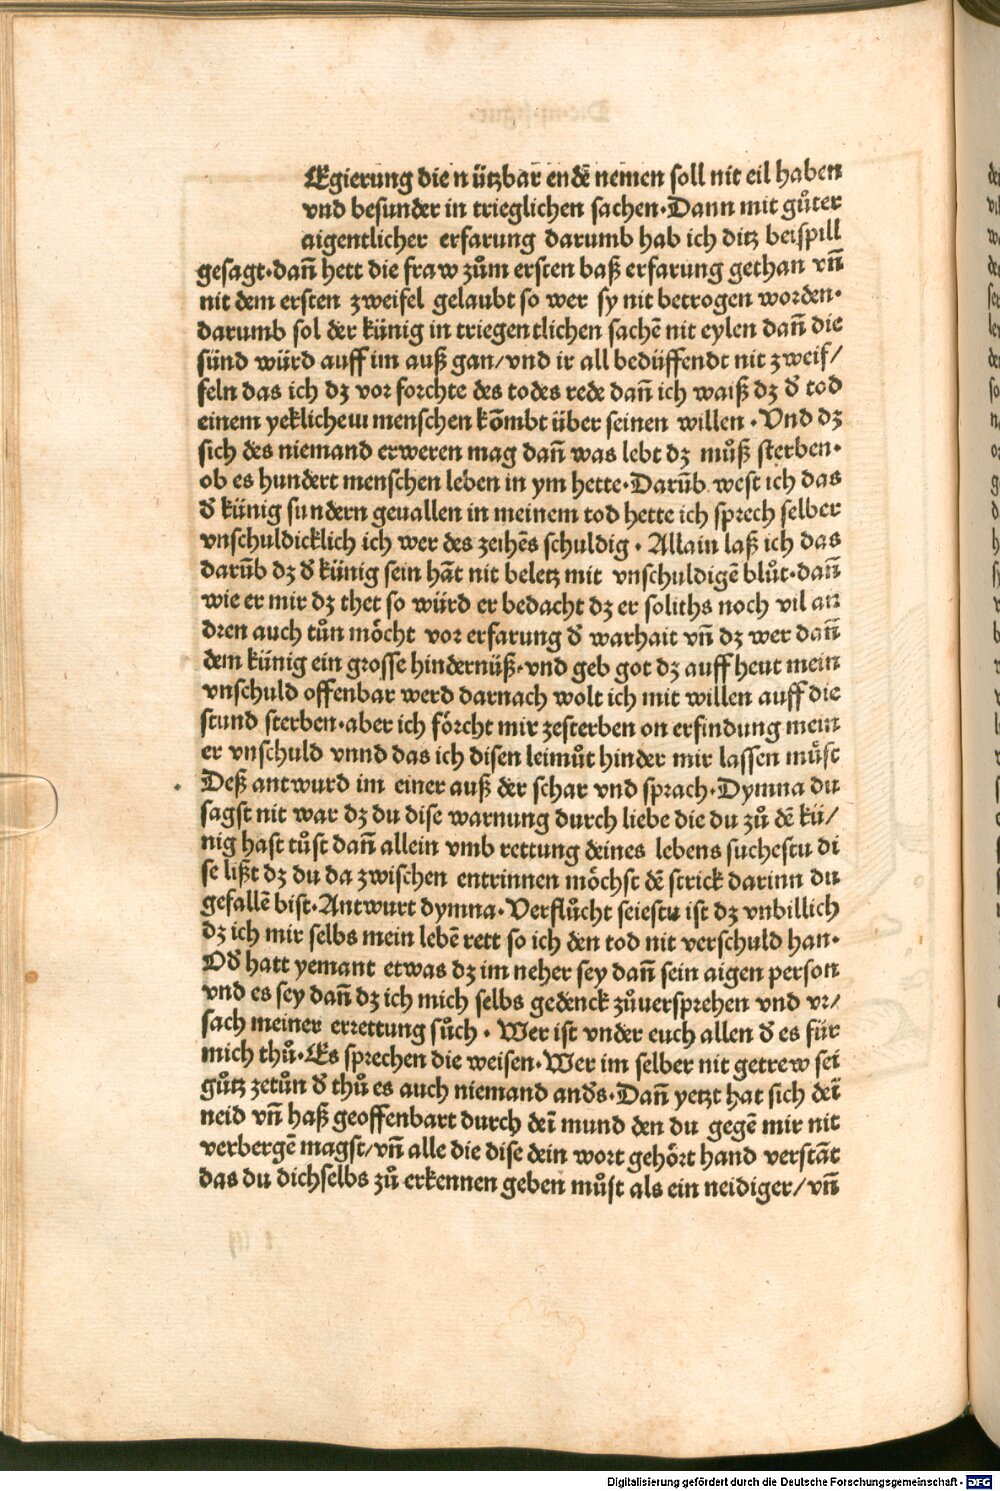 Egierung die nützbar endē nemen soll nit eil haben
vnd besunder in trieglichen sachen·Dann mit gůter
aigentlicher erfarung darumb hab ich ditz beispill
gesagt·dañ hett die fraw zům ersten baß erfarung gethan vñ
nit dem ersten zweifel gelaubt so wer sy nit betrogen worden·
darumb sol der künig in triegentlichen sachē nit eylen dañ die
sünd würd auff im auß gan/vnd ir all bedüffendt nit zweif/
feln das ich dz vor forchte des todes rede dañ ich waiß dz d̕ tod
einem yeklichem menschen kōmbt über seinen willen·Vnd dz
sich des niemand erweren mag dañ was lebt dz můß sterben·
ob es hundert menschen leben in ym hette·Darūb west ich das
d̕ künig sundern geuallen in meinem tod hette ich sprech selber
vnschuldicklich ich wer des zeihēs schuldig·Allain laß ich das
darūb dz d̕ künig sein hāt nit beletz mit vnschuldigē blůt·dañ
wie er mir dz thet so würd er bedacht dz er soliths noch vil an
dren auch tůn möcht vor erfarung d̕ warhait vñ dz wer dañ
dem künig ein grosse hindernüß·vnd geb got dz auff heut mein
vnschuld offenbar werd darnach wolt ich mit willen auff die
stund sterben·aber ich förcht mir zesterben on erfindung mein
er vnschuld vnnd das ich disen leimůt hinder mir lassen müst
Deß antwurd im einer auß der schar vnd sprach·Dymna du
sagst nit war dz du dise warnung durch liebe die du zů dē kü/
nig hast tůst dañ allein vmb rettung deines lebens suchestu di
se lißt dz du da zwischen entrinnen möchst dē strick darinn du
gefallē bist·Antwurt dymna·Verflůcht seiestu ist dz vnbillich
dz ich mir selbs mein lebē rett so ich den tod nit verschuld han·
Od̕ hatt yemant etwas dz im neher sey dañ sein aigen person
vnd es sey dañ dz ich mich selbs gedenck zůuersprehen vnd vr/
sach meiner errettung sůch·Wer ist vnder euch allen d̕ es für
mich thů·Es sprechen die weisen·Wer im selber nit getrew sei
gůtz zetůn d̕ thů es auch niemand and̕s·Dañ yetzt hat sich deī
neid vñ haß geoffenbart durch deī mund den du gegē mir nit
verbergē magst/vñ alle die dise dein wort gehört hand verstāt
das du dichselbs zů erkennen geben můst als ein neidiger/vñ
Digitalisierung gefördert durch die Deutsche Forschungsgemeinschaft - DFG